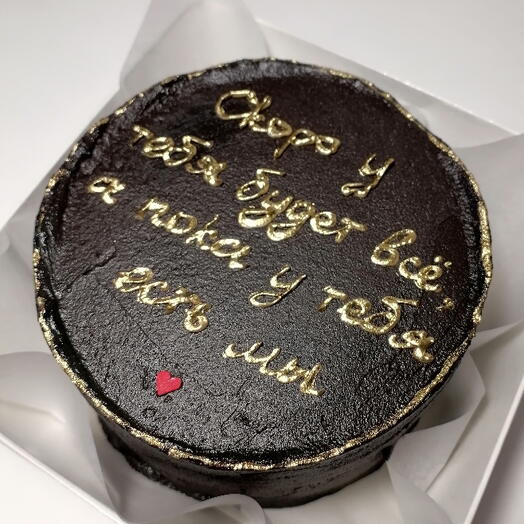 Скоро у
тебя будет всё,
а пока у тебя
есть мы